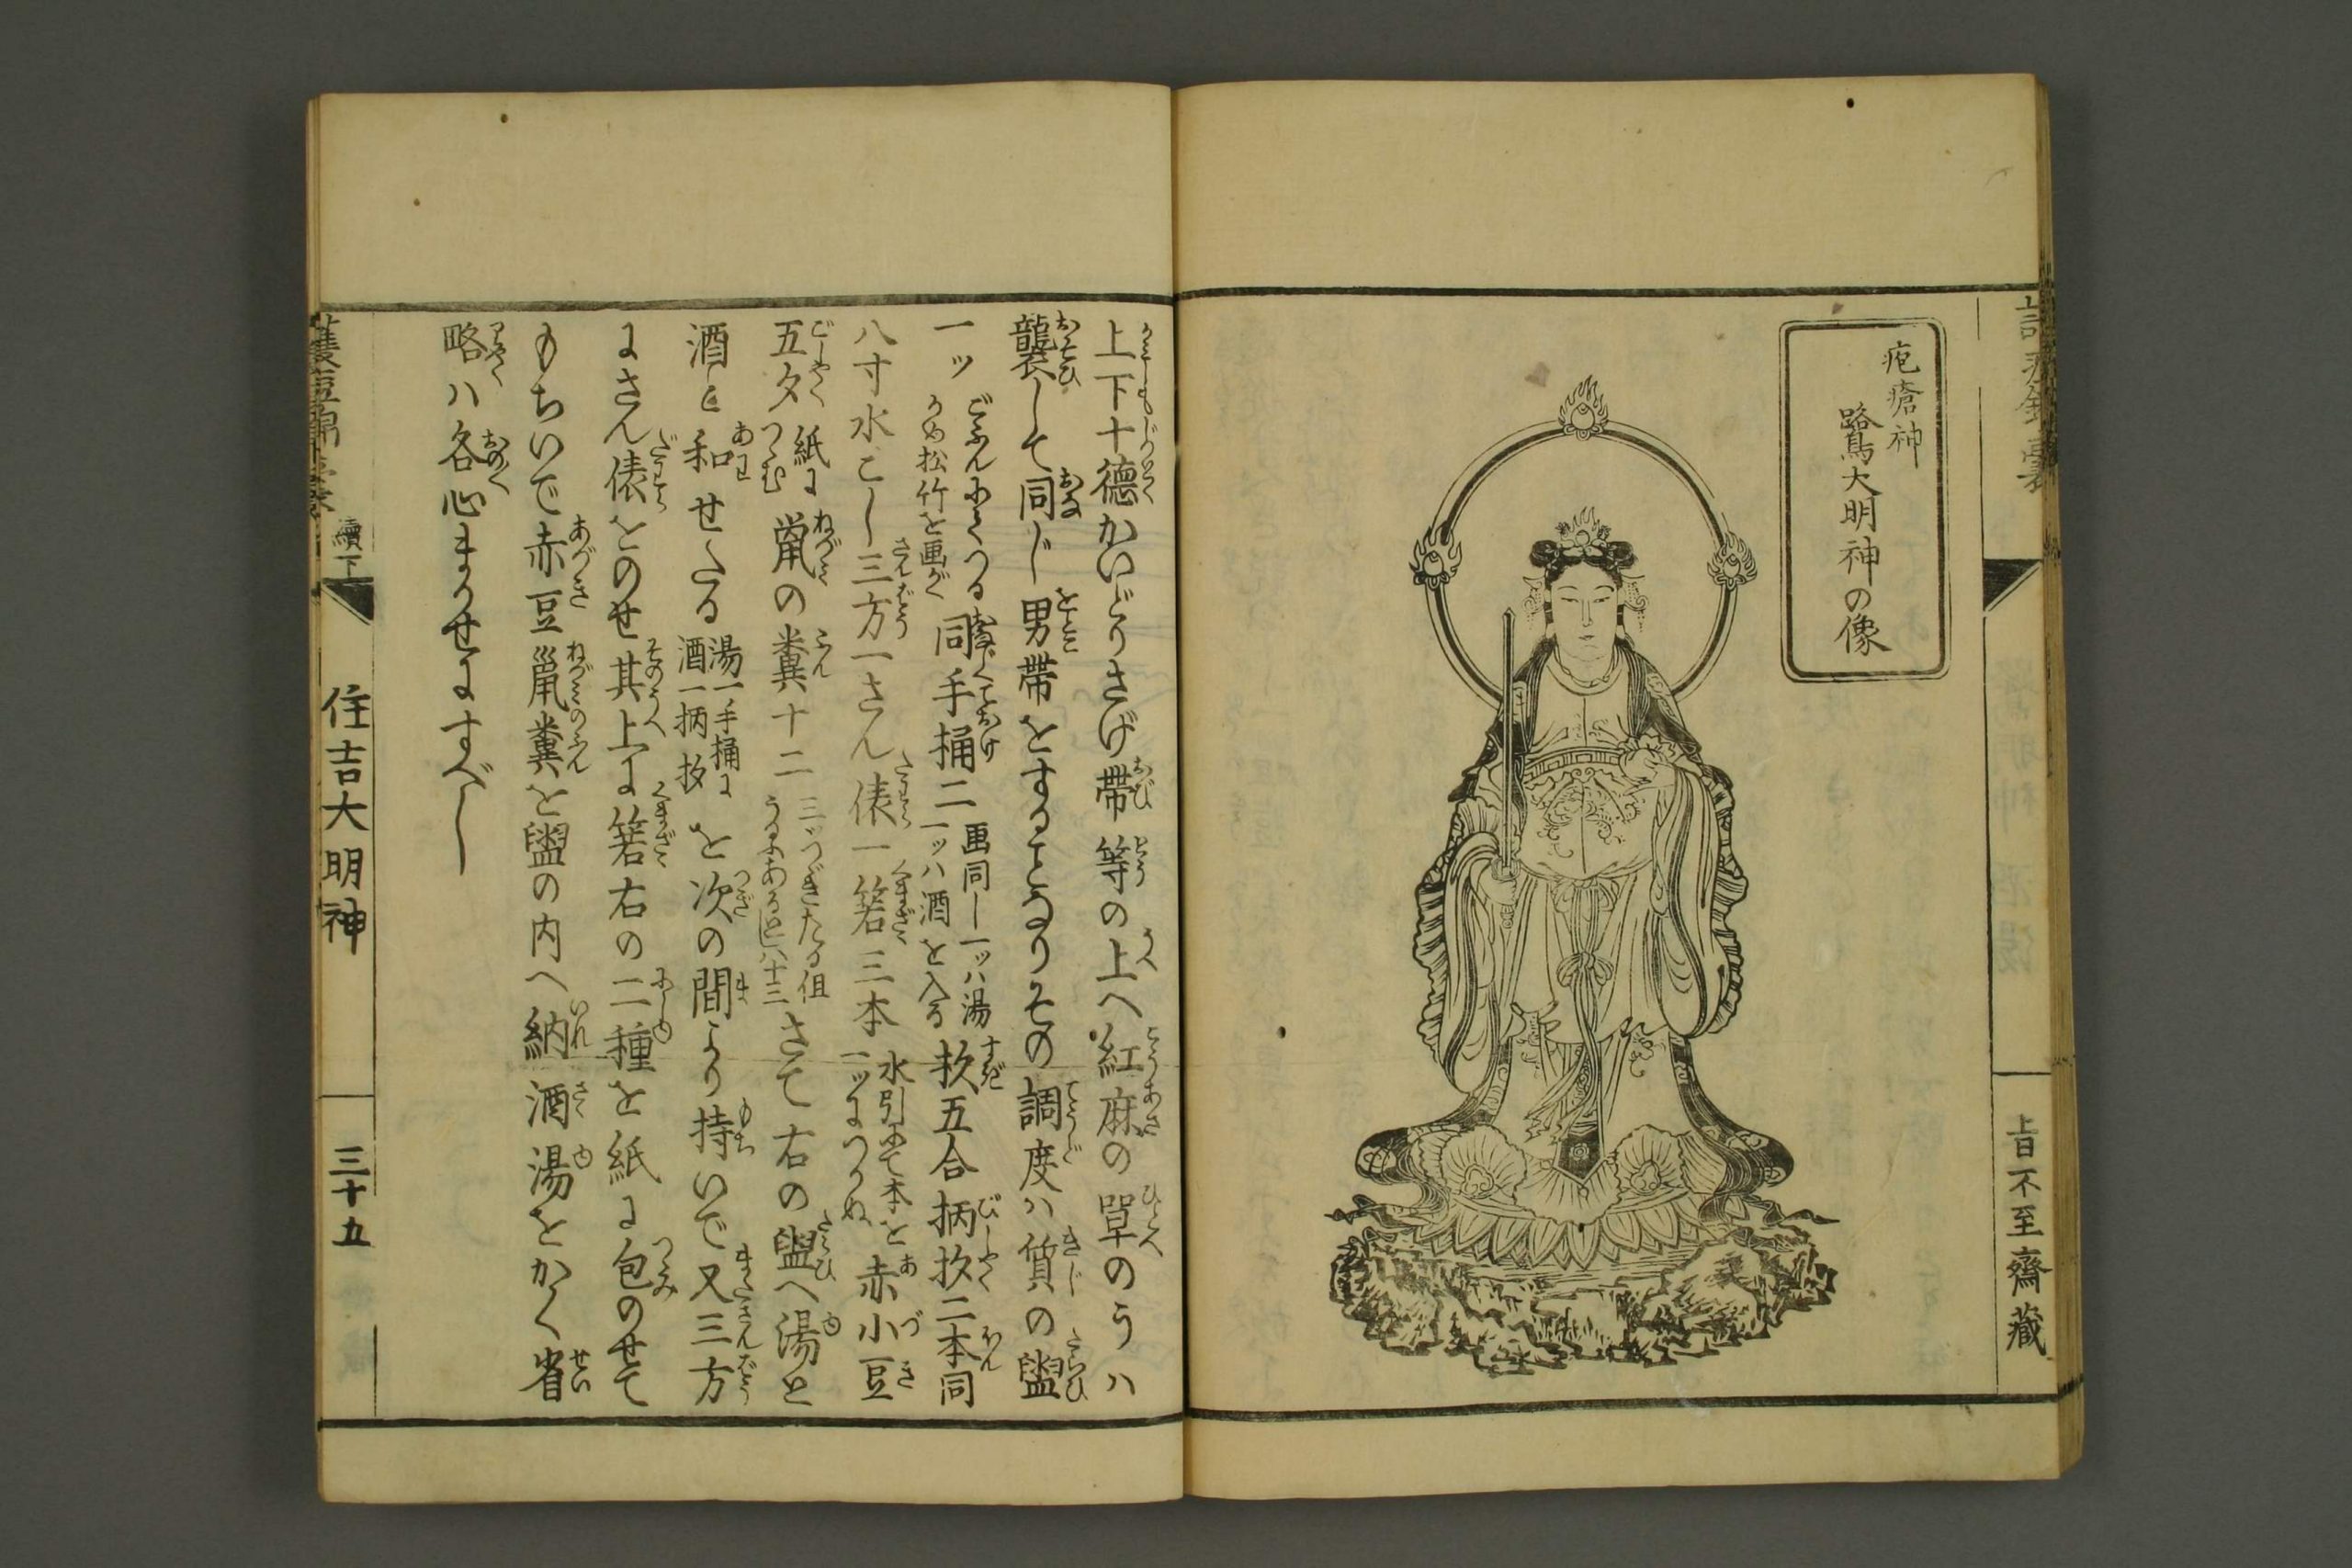 疱瘡神
鷺大明神の像
旨不至齋藏
上下十德かいどりさげ帶等の上へ紅麻の單のうハ
襲して同じ男帶をするとなりその調度ハ質の盥
一ッ ごふんにてつるかめ松竹を画がく 同手桶二 画同し一ッハ湯一ッハ酒を入る 杉五合柄杓二本同
八寸水こし三方一さん俵一箬三本 水引にて本を一ッにつかぬ 赤小豆
五夕 紙につゝむ 鼠の糞十二 三ッづきたる俎うるふあるとしハ十三 さて右の盥へ湯と
酒と和せたる 湯一手桶に酒一柄杓 を次の間より持いで又三方
にさん俵をのせ其上に箬右の二種を紙に包のせて
もちいで赤豆鼠糞を盥の内へ納酒湯をかく省
略ハ各心まかせにすべし
續下
住吉大明神
三十五